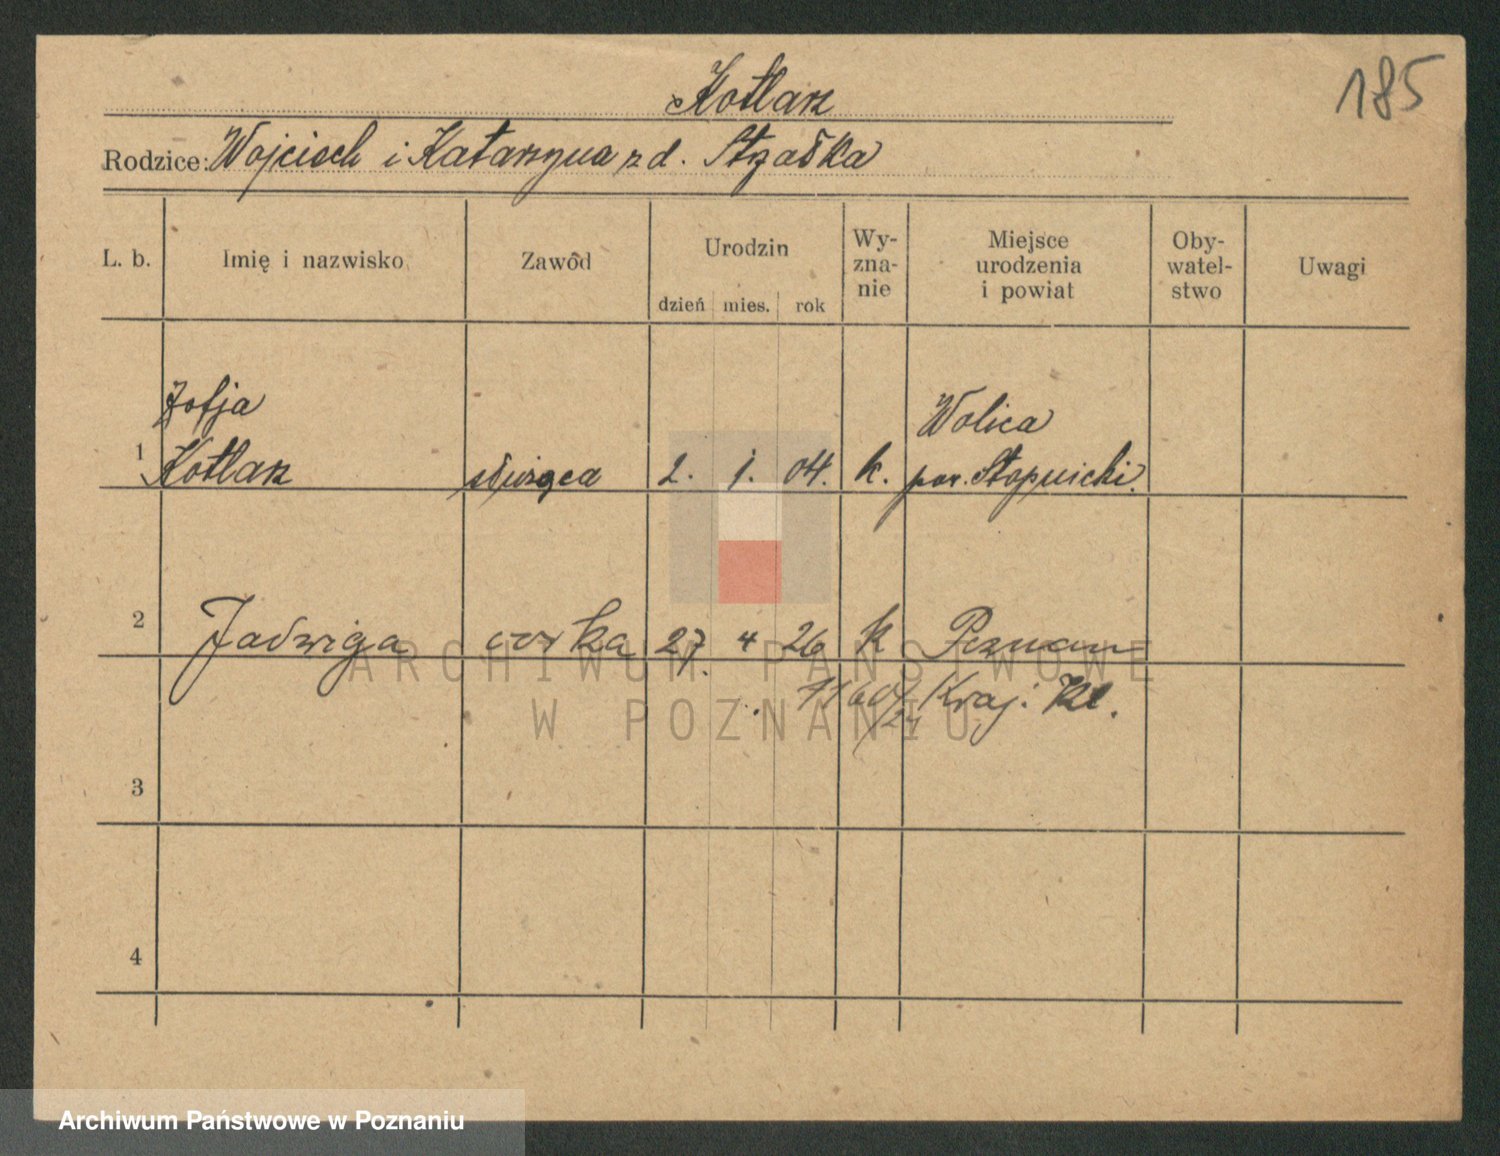 Kotlarz
185
Rodzice: Wojciech i Katarzyna z d. Strzałka
L. b.
Imię i nazwisko
Zawód
Urodzin
dzień mies. rok
Wy-
zna-
nie
Miejsce
urodzenia
i powiat
Oby-
watel-
stwo
Uwagi
Zofja
1 Kotlarz służąca 2. 1. 04. k. pow. Stopnicki.
Wolica
2 Jadwiga corka 27. 4 26 k Poznań
Kraj. Kl.
3
4
ARCHIWUM PAŃSTWOWE
W POZNANIU
Archiwum Państwowe w Poznaniu